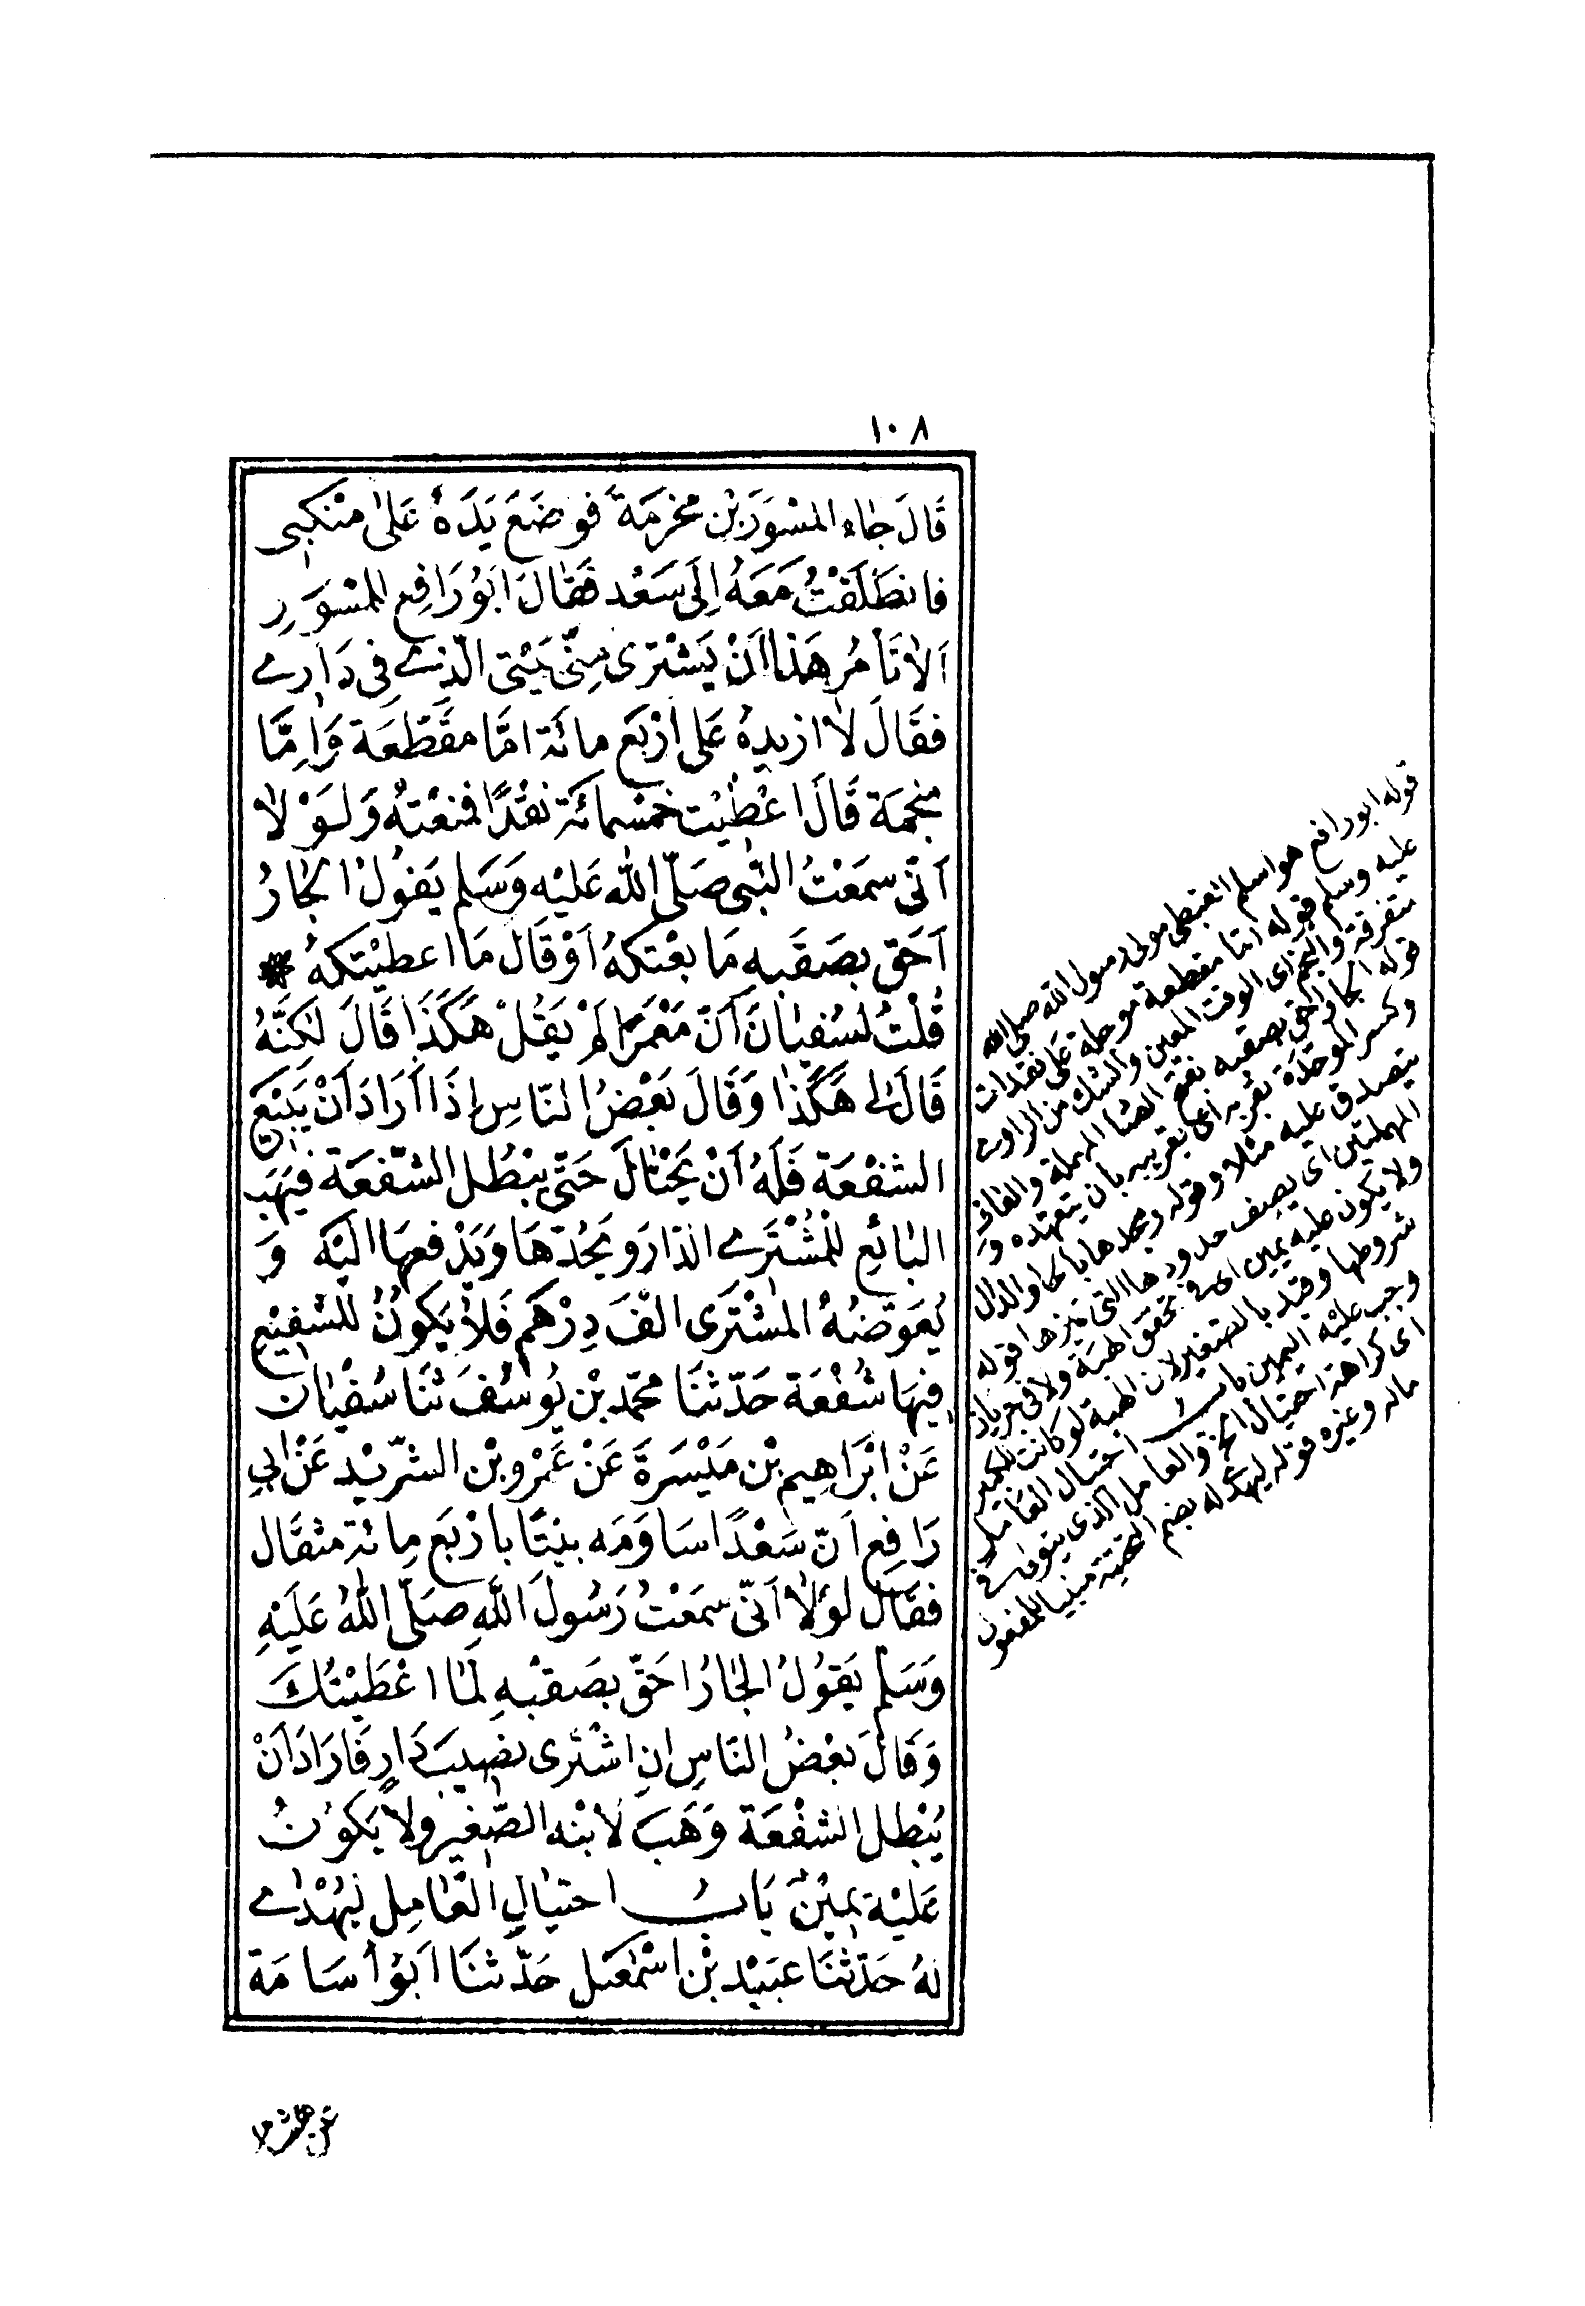 ١٠٨
قَالَ جَاء المسْوَرَ بْن مخرمَة فوضَعَ يَدَهُ عَلىٰ منْكبِى
فانطَلَقْتُ مَعَهُ اِلَى سَعْد فَقَالَ اَبُو رَافِع للمسْوَرِ
اَلاٰ تَأمُر هَذا اَنْ يَشْتَرى مِنّى بَيْتى الّذى فِى دَارى
فقَالَ لاٰ ازيدهُ عَلى اَرْبَع مائَة امَّا مقَطّعَة وَاِمَّا
منجمَة قَالَ اعْطيْت خمْسمائَة نقْدًا فمنعْتهُ وَلَوْ لاٰ
اَنّى سمَعْتُ النّبى صَلّى اللّٰه عَليْه وَسَلم يَقولُ الجَارُ
اَحَقّ بصَقَبهِ مَا بعْتكهُ اَوْ قَال مَا اعطيْتكهُ *
قُلْتُ لسُفيٰانَ اَنّ مَعْمَرًا لَمْ يَقُلْ هَكَذَا قَالَ لكنَّهُ
قَالَ لى هَكَذا وَقَالَ بَعْضُ النّاسِ اِذَا اَرَادَ اَنْ يَبيْعَ
الشفْعَة فَلَهُ اَنْ يَحْتٰالَ حَتّى يبْطُل الشّفعَة فيَهَب
البٰائِع للمُشْتَرى الدّارَ و يَحُدّهَا وَيَدْفعهَا اليْه وَ
يُعَوّضهُ المشْتَرى الفَ دِرْهَم فَلاٰ يَكونُ للشفيْع
فِيهَا شُفْعَة حَدّثنَا محمّد بْن يُوسُفَ ثنَا سُفْيَان
عَنْ ابْرَاهِيم بْن مَيْسَرَةَ عَنْ عَمْرو بْن الشّريْد عَنْ ابى
رَافِع اَنّ سَعْدًا سَاوَمَه بيْتًا باَرْبَع مِائة مثقَال
فقَالَ لوْلاٰ اَنّى سمَعْتُ رَسُولَ اللّٰه صَلّى اللّٰهُ عَلَيْهِ
وَسَلم يَقوُلُ الجَارُ اَحَقّ بصَقبْهِ لَمٰا اعْطَيْتُكَ
وَقَالَ بَعْضُ النّاسِ اِن اشْتَرى نصِيبَ دَارٍ فَارَادَ اَنْ
يُبْطل الشفْعَة وَهَبَ لاٰبْنه الصّغير ولاٰ يَكوُنُ
عَليْه يَميْنٌ بَابُ احتيٰالِ العَامِل ليُهْدٰى
لهُ حَدّثنَا عبَيْد بْن اسْمٰعيل حَدّثنَا اَبوُ اُسَامَة
قوله ابورافع هو اسلم القبطى مولى رسول الله صلى الله
عليه وسلم قوله امّا مقطعة موجلة على نقدات
متفرقة والنجم اى الوقت المعين والشك من الراوى
قوله الجار احق بصقبه بفتح الصّا المهملة والقاف
وكسر الموحّدة بقربه اى بقريبه بان يتعهّده و
يتصدق عليه مثلا وقوله ويحدها بالحاو الدال
المهملتين اى يصف حدودها التى تميزها قوله
ولا يكون عليه يمين اى فى تحقق الهبة ولا فى جريان
شروطها وقيد بالصغير لان الهبة لو كانت للكبير
وجب عليْه اليمين باب احتيال العَامل
اى كراهة احتيال الخ والعامل الذى يتولى فى
ماله وغيره قوله ليهدى له بضم التحتيّة مبنيا للمفعول
عن هشام